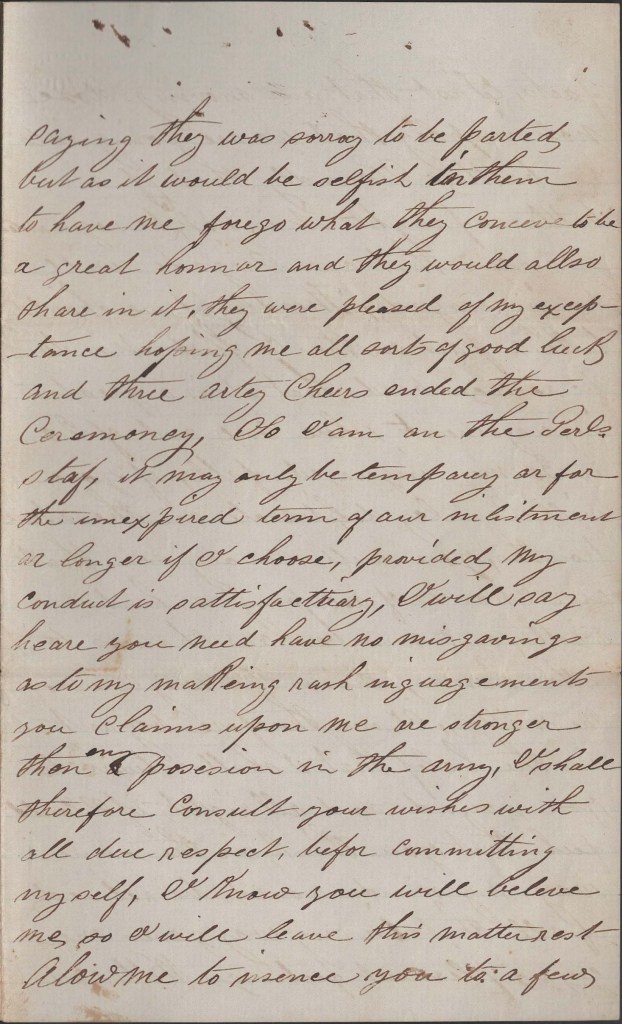 saying they was sorrey to be parted,
but as it would be selfish in them
to have me forego what they conceve to be
a great honnor and they would allso
share in it, they were pleased of my excep-
-tance hoping me all sorts of good luck
and three artey Cheirs ended the
Ceremoney, So I am on the Gerls
staf, it may only be tempary or for
the unexpired term of our inlistment
or longer if I choose, provided, my
conduct is sattisfactuary, I will say
heare you need have no misgavings
as to my makeing rash inguagements
you claims upon me are stronger
then eny posesion in the army, I shall
therefore consult your wishes with
all due respect, befor committing
myself, I know you will beleve
me, so I will leave this matter rest
Alow me to you to a few